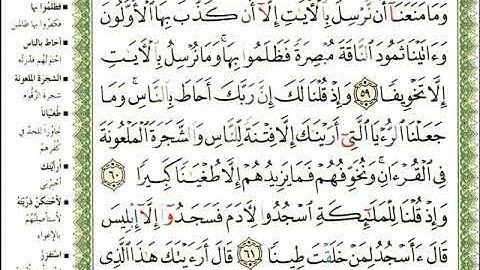 وَمَا مَنَعَنَآ أَن نُّرْسِلَ بِٱلْأَيَٰتِ إِلَّآ أَن كَذَّبَ بِهَا ٱلْأَوَّلُونَ
وَءَاتَيْنَا ثَمُودَ ٱلنَّاقَةَ مُبْصِرَةً فَظَلَمُوا۟ بِهَا ۚ وَمَا نُرْسِلُ بِٱلْأَيَٰتِ
إِلَّا تَخْوِيفًا ٥٩ وَإِذْ قُلْنَا لَكَ إِنَّ رَبَّكَ أَحَاطَ بِٱلنَّاسِ ۚ وَمَا
جَعَلْنَا ٱلرُّءْيَا ٱلَّتِىٓ أَرَيْنَٰكَ إِلَّا فِتْنَةً لِّلنَّاسِ وَٱلشَّجَرَةَ ٱلْمَلْعُونَةَ
فِى ٱلْقُرْءَانِ ۚ وَنُخَوِّفُهُمْ فَمَا يَزِيدُهُمْ إِلَّا طُغْيَٰنًا كَبِيرًا ٦٠
وَإِذْ قُلْنَا لِلْمَلَٰٓئِكَةِ ٱسْجُدُوا۟ لِأَدَمَ فَسَجَدُوٓا۟ إِلَّآ إِبْلِيسَ
قَالَ ءَأَسْجُدُ لِمَنْ خَلَقْتَ طِينًا ٦١ قَالَ أَرَءَيْتَكَ هَٰذَا ٱلَّذِى
فظلموا بها
فكفروا بها ظالمين
أحاط بالناس
احتوتهم قدرته
الشجرة الملعونة
شجرة الزقوم
طغيانا
تجاوزا للحد في
كفرهم
أرأيتك
أخبرني
لأحتنكن ذريته
لأستأصلنهم
بالإغواء
استفزز